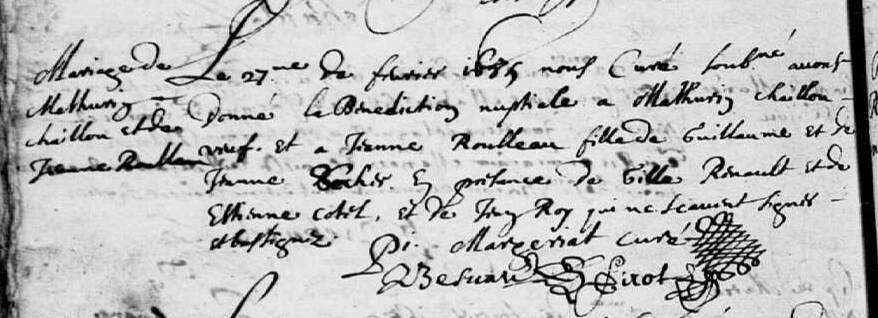 Mariage de
Mathurin
chaillou et de
Jeanne Roulleau
Le 27me de febvrier 1685 nous Curé soubné avons
donné la Benediction nuptiale a Mathurin chaillou
veuf. et a Jeanne Roulleau fille de Guillaume et de
Jeanne En presence de Gille Renault et de
Estienne cotel, et de Roy qui ne scavent signer
et
Pi. Margeriat curé
Besnard Girot